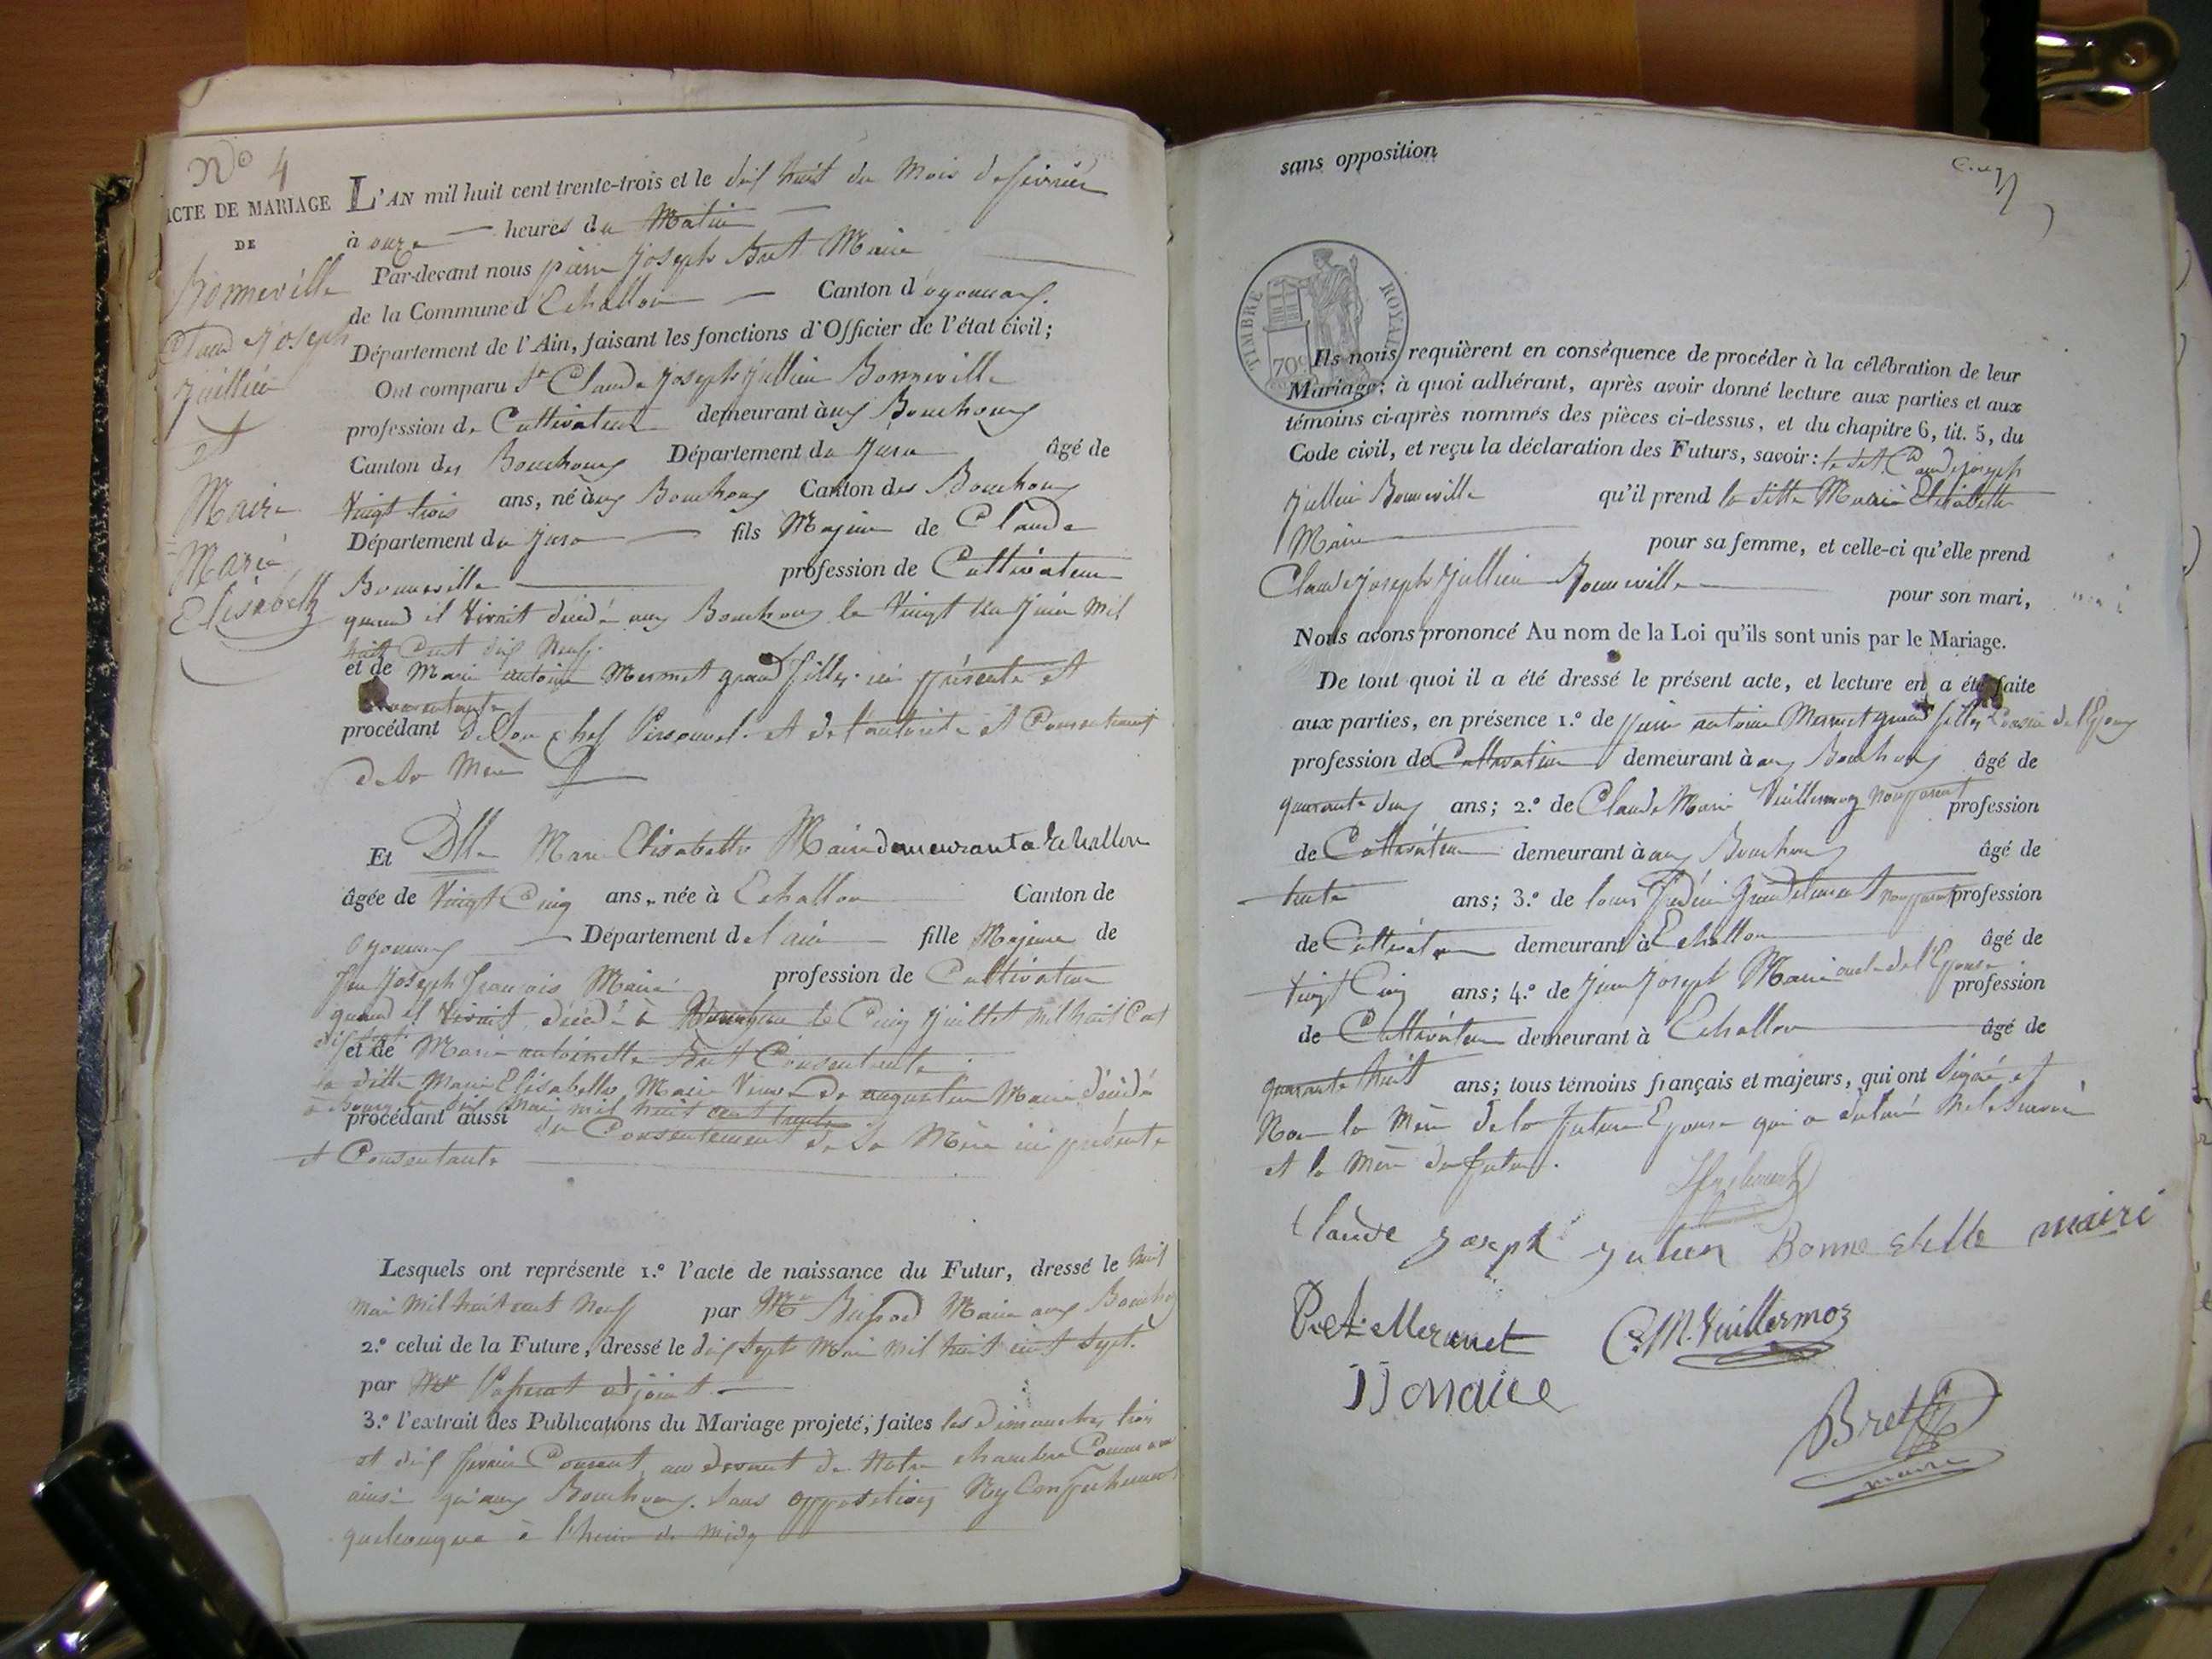 N° 4
ACTE DE MARIAGE
DE
Bonneville
Claude Joseph
Jullien
et
Maire
Marie
Elisabeth
L'AN mil huit cent trente-trois et le dix huit du Mois de février
à onze heures du Matin
Par-devant nous pierre Joseph Bret Maire
de la Commune d'Echallon Canton d'oyonnax
Département de l'Ain, faisant les fonctions d'Officier de l'état civil;
Ont comparu Sr Claude Joseph Jullien Bonneville
profession de Cultivateur demeurant à aux Bouchoux
Canton des Bouchoux Département du Jura âgé de
Vingt trois ans, né à aux Bouchoux Canton des Bouchoux
Département du Jura fils Majeur de Claude
Bonneville profession de Cultivateur
quand il Vivait décédé aux Bouchoux le Vingt un Juin Mil
huit Cent dix Neuf
et de Marie antoine Mermet grand fille ici présente et
Consentante
procédant de Son chef Personnel et de l'autorité et Consentement
de Sa Mère
Et Dlle Marie Elisabette Maire demeurant a Echallon
âgée de Vingt Cinq ans, née à Echallon Canton de
oyonnax Département de l'ain fille Majeure de
Jean Joseph françois Maire profession de Cultivateur
quand il Vivait, décédé à le Cinq Juillet Mil huit Cent
et de Marie antoinette Bret Consentante
la ditte Marie Elisabette Maire Veuve de augustin Maire décédé
à Bourg le dix Mai mil huit cent trente
procédant aussi du Consentement de Sa Mère ici présente
et Consentante
Lesquels ont représenté 1.° l'acte de naissance du Futur, dressé le huit
mai Mil huit cent Neuf par Mr Maire aux Bouchoux
2.° celui de la Future, dressé le dix Sept Mai Mil huit cent Sept.
par Mr Passerat adjoint
3.° l'extrait des Publications du Mariage projeté, faites les dimanches trois
et dix fevrier Courant, au devant de Notre chambre Commune
ainsi qu'aux Bouchoux. Sans opposition Ny Empechement
quelconque à l'heure de midy
sans opposition
TIMBRE ROYAL
70c
Ils nous requièrent en conséquence de procéder à la célébration de leur
Mariage; à quoi adhérant, après avoir donné lecture aux parties et aux
témoins ci-après nommés des pièces ci-dessus, et du chapitre 6, tit. 5, du
Code civil, et reçu la déclaration des Futurs, savoir: le dit Claude joseph
Jullien Bonneville qu'il prend la ditte Marie Elisabette
Maire pour sa femme, et celle-ci qu'elle prend
Claude Joseph Jullien Bonneville pour son mari,
Nous avons prononcé Au nom de la Loi qu'ils sont unis par le Mariage.
De tout quoi il a été dressé le présent acte, et lecture en a été faite
aux parties, en présence 1.° de pierre antoine Mermet grand fille Cousin de l'Epoux
profession de Cultivateur demeurant à aux Bouchoux âgé de
quarante deux ans; 2.° de Claude Marie Vuillermoz Non parent profession
de Cultivateur demeurant à aux Bouchoux âgé de
trente ans; 3.° de louis Grandclement Non parent profession
de Cultivateur demeurant à Echallon âgé de
Vingt Cinq ans; 4.° de Jean Joseph Maire oncle de l'Epouse profession
de Cultivateur demeurant à Echallon âgé de
quarante huit ans; tous témoins français et majeurs, qui ont Signé et
Non la Mère de la future Epouse qui a déclaré Ne le Savoir
et la Mère du futur.
Claude Joseph Julien Bonneville maire
P. A. Mermet C. M. Vuillermoz
JJ Maire
Bret
maire